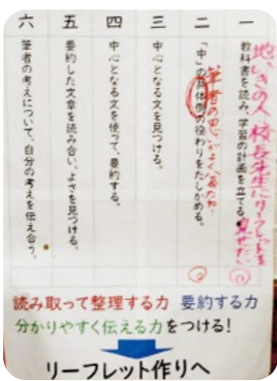 地いきの人、校長先生にリーフレットを見せたい
一 教科書を読み、学習の計画を立てる。
二 「中」の具体例の役わりをたしかめる。
三 中心となる文を見つける。
四 中心となる文を使って、要約する。
五 要約した文章を読み合い、よさを見つける。
六 筆者の考えについて、自分の考えを伝え合う。
読み取って整理する力 要約する力
分かりやすく伝える力をつける!
リーフレット作りへ